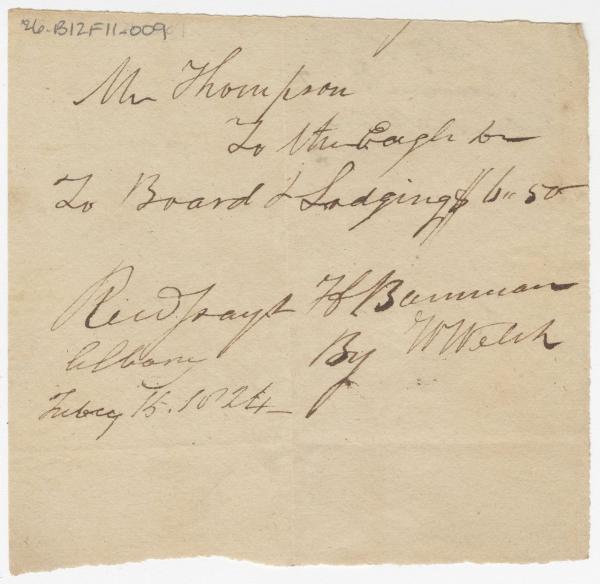 26-B12F11-009
Mr Thompson
To the Eagle
To Board & Lodging $ 6" 50
Recd payt H Bamman
Albany By W Welsh
Febry 15. 1824